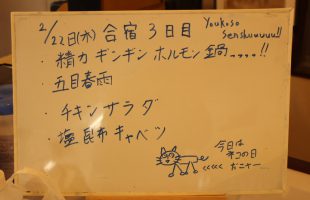 2/22日(水) 合宿3日目
Youkoso
Senshuuuuu!!
・精力ギンギンホルモン鍋....!!
・五目春雨
・チキンサラダ
・塩昆布キャベツ
今日は
ネコの日
だニャー